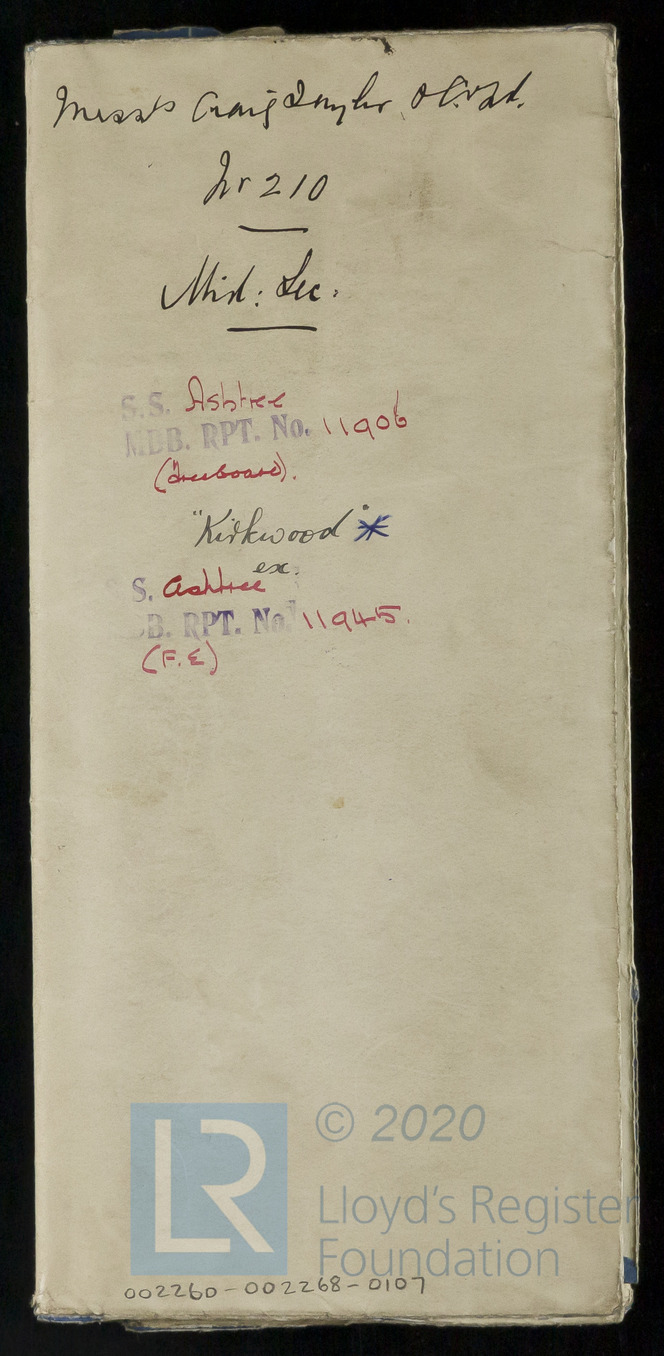 Mess.s Craig Taylor & Co. Ltd.
Nr 210
Mid: Sec:
S.S. Ashtree
MDB. RPT. No. 11906
(Freeboard).
"Kirkwood"*
ex.
S. Ashtree
B. RPT. No. 11945.
(F.E)
LR
© 2020
Lloyd's Register
Foundation
002260-002268-0107